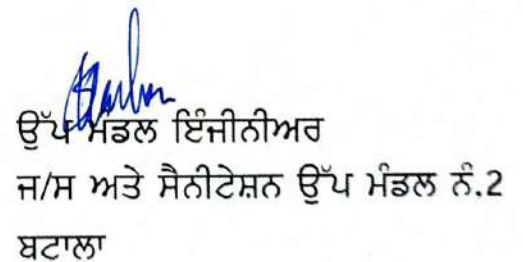 ਉੱਪ ਮੰਡਲ ਇੰਜੀਨੀਅਰ
ਜ/ਸ ਅਤੇ ਸੈਨੀਟੇਸ਼ਨ ਉੱਪ ਮੰਡਲ ਨੰ.2
ਬਟਾਲਾ